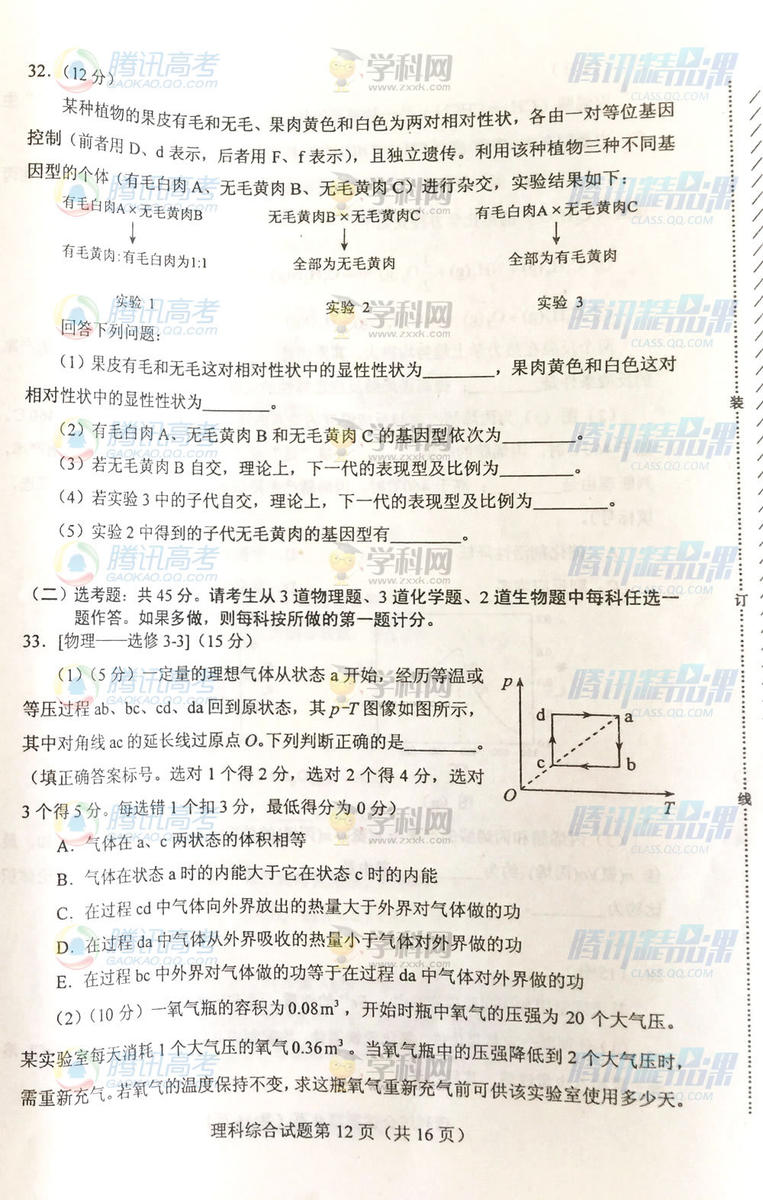 32.（12分）
某种植物的果皮有毛和无毛、果肉黄色和白色为两对相对性状，各由一对等位基因
控制（前者用 D、d 表示，后者用 F、f 表示），且独立遗传。利用该种植物三种不同基
因型的个体（有毛白肉 A、无毛黄肉 B、无毛黄肉 C）进行杂交，实验结果如下：
有毛白肉A×无毛黄肉B 无毛黄肉B×无毛黄肉C 有毛白肉A×无毛黄肉C
有毛黄肉:有毛白肉为1:1 全部为无毛黄肉 全部为有毛黄肉
实验 1 实验 2 实验 3
回答下列问题：
（1）果皮有毛和无毛这对相对性状中的显性性状为________，果肉黄色和白色这对
相对性状中的显性性状为________。
（2）有毛白肉 A、无毛黄肉 B 和无毛黄肉 C 的基因型依次为________。
（3）若无毛黄肉 B 自交，理论上，下一代的表现型及比例为________。
（4）若实验 3 中的子代自交，理论上，下一代的表现型及比例为________。
（5）实验 2 中得到的子代无毛黄肉的基因型有________。
（二）选考题：共 45 分。请考生从 3 道物理题、3 道化学题、2 道生物题中每科任选一
题作答。如果多做，则每科按所做的第一题计分。
33．[物理——选修 3-3]（15 分）
（1）（5 分）一定量的理想气体从状态 a 开始，经历等温或
等压过程 ab、bc、cd、da 回到原状态，其 p-T 图像如图所示，
其中对角线 ac 的延长线过原点 O。下列判断正确的是________。
（填正确答案标号。选对 1 个得 2 分，选对 2 个得 4 分，选对
3 个得 5 分。每选错 1 个扣 3 分，最低得分为 0 分）
p
d a
c b
O T
A．气体在 a、c 两状态的体积相等
B．气体在状态 a 时的内能大于它在状态 c 时的内能
C．在过程 cd 中气体向外界放出的热量大于外界对气体做的功
D．在过程 da 中气体从外界吸收的热量小于气体对外界做的功
E．在过程 bc 中外界对气体做的功等于在过程 da 中气体对外界做的功
（2）（10 分）一氧气瓶的容积为 0.08 m³，开始时瓶中氧气的压强为 20 个大气压。
某实验室每天消耗 1 个大气压的氧气 0.36 m³。当氧气瓶中的压强降低到 2 个大气压时，
需重新充气。若氧气的温度保持不变，求这瓶氧气重新充气前可供该实验室使用多少天。
理科综合试题第 12 页（共 16 页）
装
订
线
腾讯高考
GAOKAO.QQ.COM
学科网
www.zxxk.com
腾讯精品课
CLASS.QQ.COM